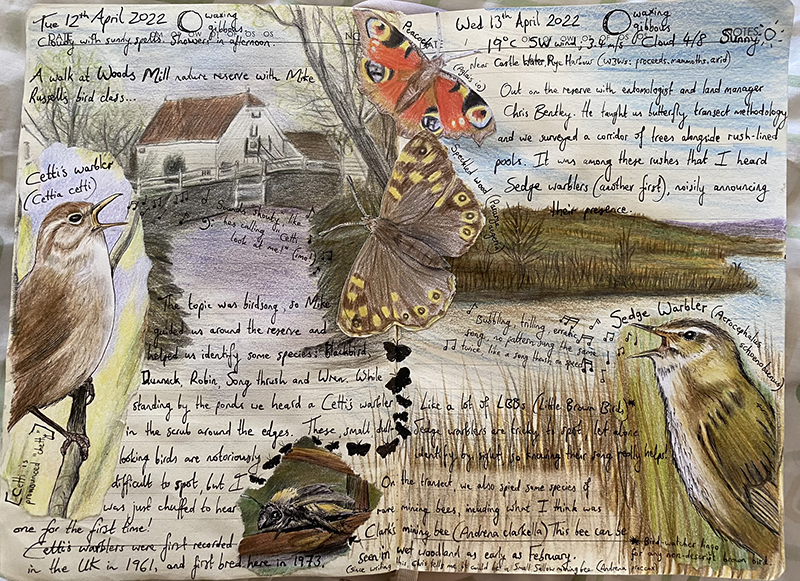 Tue 12th April 2022
waxing
gibbous
Cloudy with sunny spells. Showers in afternoon.
A walk at Woods Mill nature reserve with Mike
Russell's bird class...
Cetti's warbler
(Cettia cetti)
Sounds shouty, like
"he's calling 'I'm Cetti
look at me!'" (imo!)
The topic was birdsong, so Mike
guided us around the reserve and
helped us identify some species: Blackbird,
Dunnock, Robin, Song thrush and Wren. While
standing by the ponds we heard a Cetti's warbler
in the scrub around the edges. These, small dull-
looking birds are notoriously
difficult to spot, but I
was just chuffed to hear
one for the first time!
Cetti's warblers were first recorded
in the UK in 1961, and first bred here in 1973.
[Cetti is
pronounced "chetty"]
Peacock
(Aglais io)
Speckled wood (Pararge aegeria)
Wed 13th April 2022
waxing
gibbous
NOTES
DATE
19°C SW wind, 3.4 m/s Cloud 4/8 Sunny
Near Castle Water, Rye Harbour (W3W: proceeds.mammoths.avid)
Out on the reserve with entomologist and land manager
Chris Bentley. He taught us butterfly transect methodology
and we surveyed a corridor of trees alongside rush-lined
pools. It was among these rushes that I heard
Sedge warblers (another first), noisily announcing
their presence...
Bubbling, trilling, erratic
song, no pattern sung the same
twice, like a song thrush on speed
Sedge Warbler (Acrocephalus
schoenobaenus)
Like a lot of LBBs (Little Brown Birds)*
Sedge warblers are tricky to spot, let alone
identify by sight, so knowing their song really helps!
On the transect, we also spied some species of
rare mining bees, including what I think was
Clarks mining bee (Andrena clarkella) This bee can be
seen in wet woodland as early as February.
(Since writing this, Chris tells me it could be a Small Sallow mining bee (Andrena praecox)
* Bird-watcher lingo
for any non-descript brown bird.